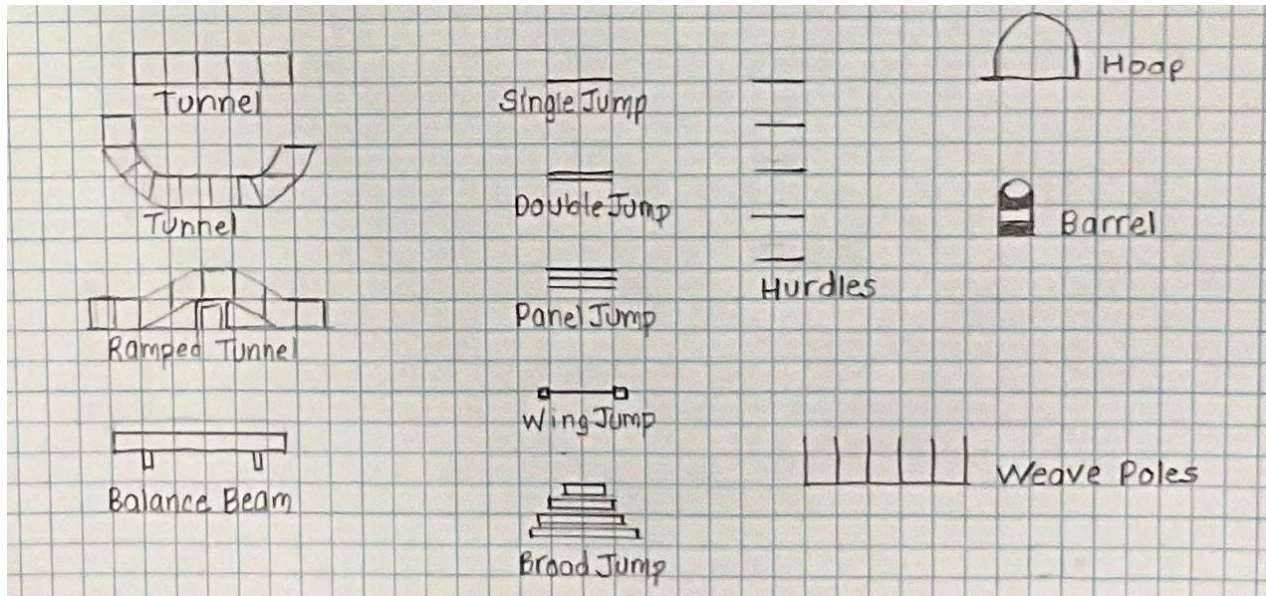 Tunnel
Tunnel
Ramped Tunnel
Balance Beam
Single Jump
Double Jump
Panel Jump
Wing Jump
Broad Jump
Hurdles
Hoop
Barrel
Weave Poles